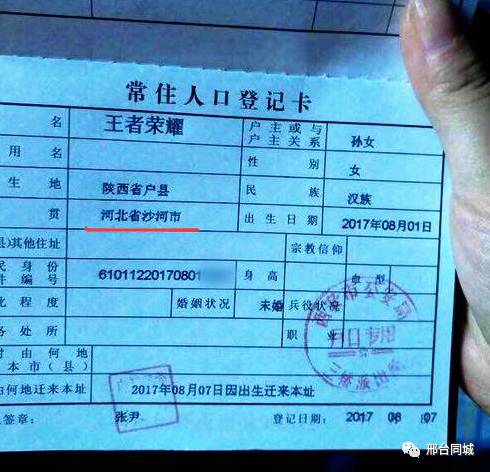 常住人口登记卡
名 王者荣耀 户主或与户主关系 孙女
用名 性别 女
生地 陕西省户县 民族 汉族
贯 河北省沙河市 出生日期 2017年08月01日
县)其他住址 宗教信仰
民身份件编号 61011220170801 身高 血型
化程度 婚姻状况 未婚 兵役状况
务处所 职业
时由何地本市(县)
由何地迁来本址 2017年08月07日因出生迁来本址
人签章: 张尹 登记日期: 2017 08 07
西安市公安局
户口专用
派出所
邢台同城